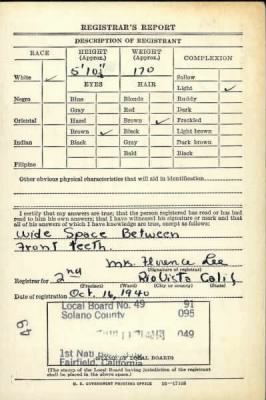 REGISTRAR'S REPORT
DESCRIPTION OF REGISTRANT
RACE
HEIGHT
(Approx.)
WEIGHT
(Approx.)
COMPLEXION
White ✓
5'10½"
170
Sallow
EYES
HAIR
Light ✓
Negro
Blue
Blonde
Ruddy
Gray
Red
Dark
Oriental
Hazel
Brown ✓
Freckled
Brown ✓
Black
Light brown
Indian
Black
Gray
Dark brown
Bald
Black
Filipino
Other obvious physical characteristics that will aid in identification
I certify that my answers are true; that the person registered has read or has had
read to him his own answers; that I have witnessed his signature or mark and that
all of his answers of which I have knowledge are true, except as follows:
Wide Space Between
Front Teeth.
Mrs. Florence Lee
(Signature of registrar)
Registrar for 2nd Rio Vista Calif
(Precinct) (Ward) (City or county) (State)
Date of registration Oct. 16, 1940
Local Board No. 49 91
Solano County 095
049
1st Nat
Fairfield, California
(STAMP OF LOCAL BOARD)
(The stamp of the Local Board having jurisdiction of the registrant
shall be placed in the above space.)
U. S. GOVERNMENT PRINTING OFFICE 16-17105